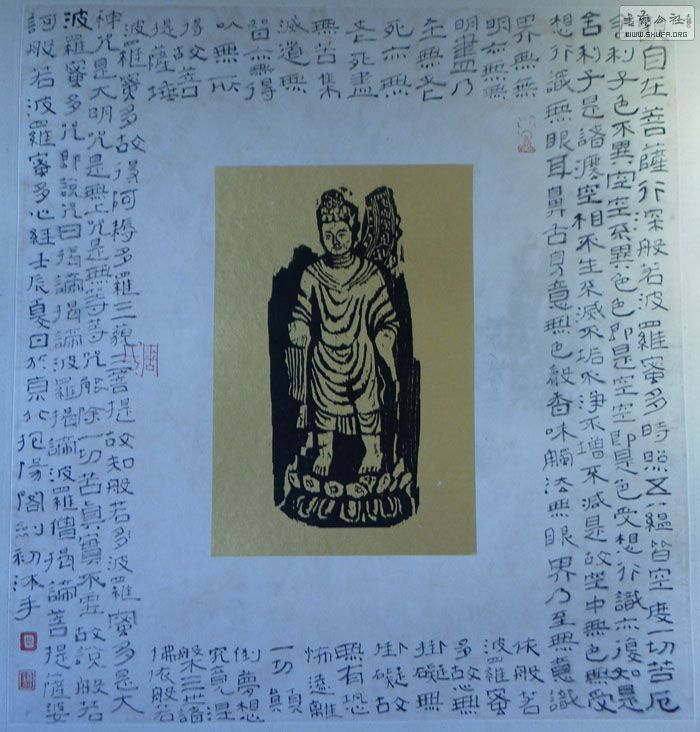 自在菩薩行深般若波羅蜜多時照五蘊皆空度一切苦厄
舍利子色不異空空不異色色即是空空即是色受想行識亦復如是
舍利子是諸灋空相不生不滅不垢不淨不增不減是故空中無色無受
想行識無眼耳鼻舌身意無色聲香味觸法無眼界乃至無意識
界無無
明亦無無
明盡乃
至無老
死亦無
老死盡
無苦集
滅道無
智亦無得
以無所
得故菩
提薩埵
依般若
波羅蜜
多故心無
掛礙無
掛礙故
無有恐
怖遠離
一切顛
倒夢想
究竟涅
槃三世諸
佛依般若
波羅蜜多故得阿耨多羅三藐三菩提故知般若多波羅蜜多是大
神咒是大明咒是無上咒是無等等咒能除一切苦真實不虛故說般若
波羅蜜多咒即說咒曰揭諦揭諦波羅揭諦波羅僧揭諦菩提薩婆
訶般若波羅蜜多心經壬辰夏日於京北抱陽閣沐手
WWW.SHUFA.ORG